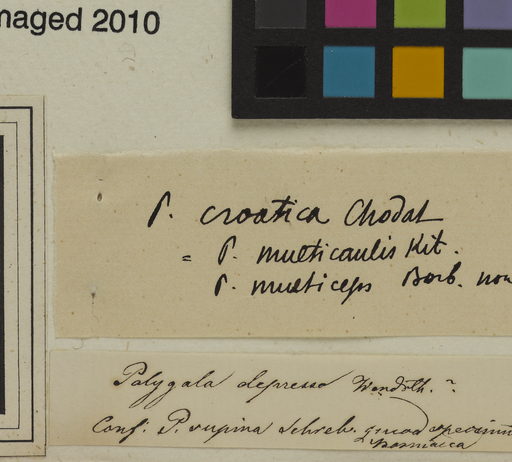 maged 2010
P. croatica Chodat
= P. multicaulis Kit.
P. multiceps Borb. non
Polygala depressa Wendrth. ?
Conf. P. rupina Schreb. quoad specimin
bosniaca